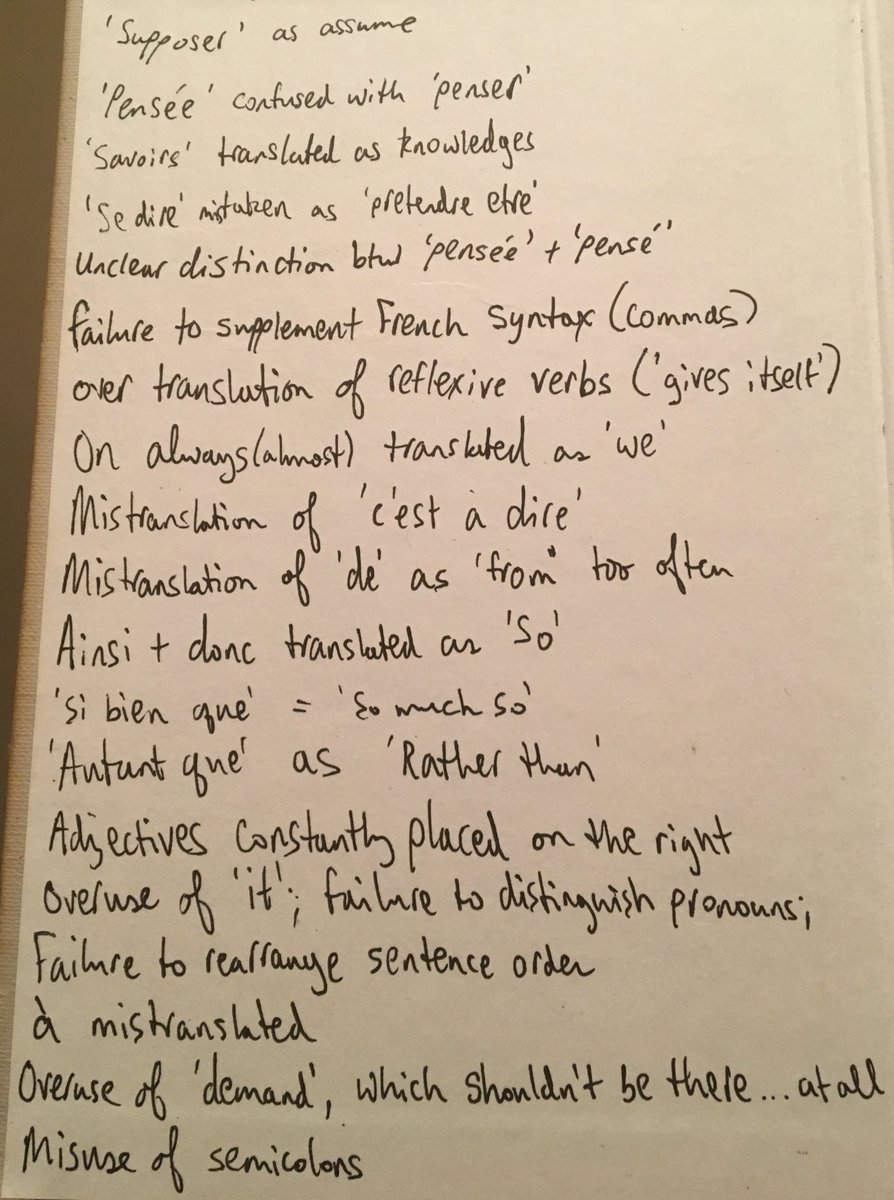 'Supposer' as assume
'Pensée' confused with 'penser'
'Savoirs' translated as knowledges
'Se dire' mistaken as 'pretendre etre'
Unclear distinction btw 'pensée' + 'pensé'
failure to supplement French syntax (commas)
over translation of reflexive verbs ('gives itself')
On always (almost) translated as 'we'
Mistranslation of 'c'est à dire'
Mistranslation of 'de' as 'from' too often
Ainsi + donc translated as 'So'
'si bien que' = 'So much so'
'Autant que' as 'Rather than'
Adjectives constantly placed on the right
Overuse of 'it'; failure to distinguish pronouns;
Failure to rearrange sentence order
à mistranslated
Overuse of 'demand', which shouldn't be there... at all
Misuse of semicolons